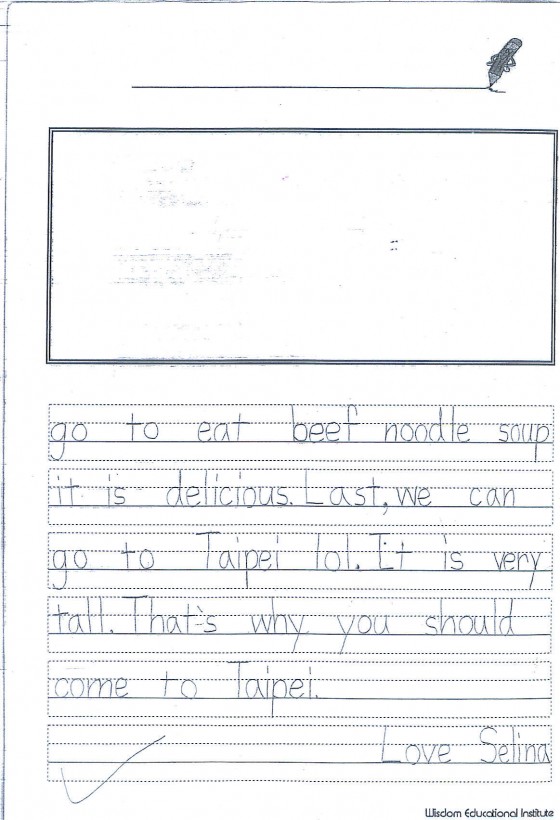 go to eat beef noodle soup
it is delicious. Last, we can
go to Taipei lol. It is very
tall. That's why you should
come to Taipei.
Love Selina
Wisdom Educational Institute